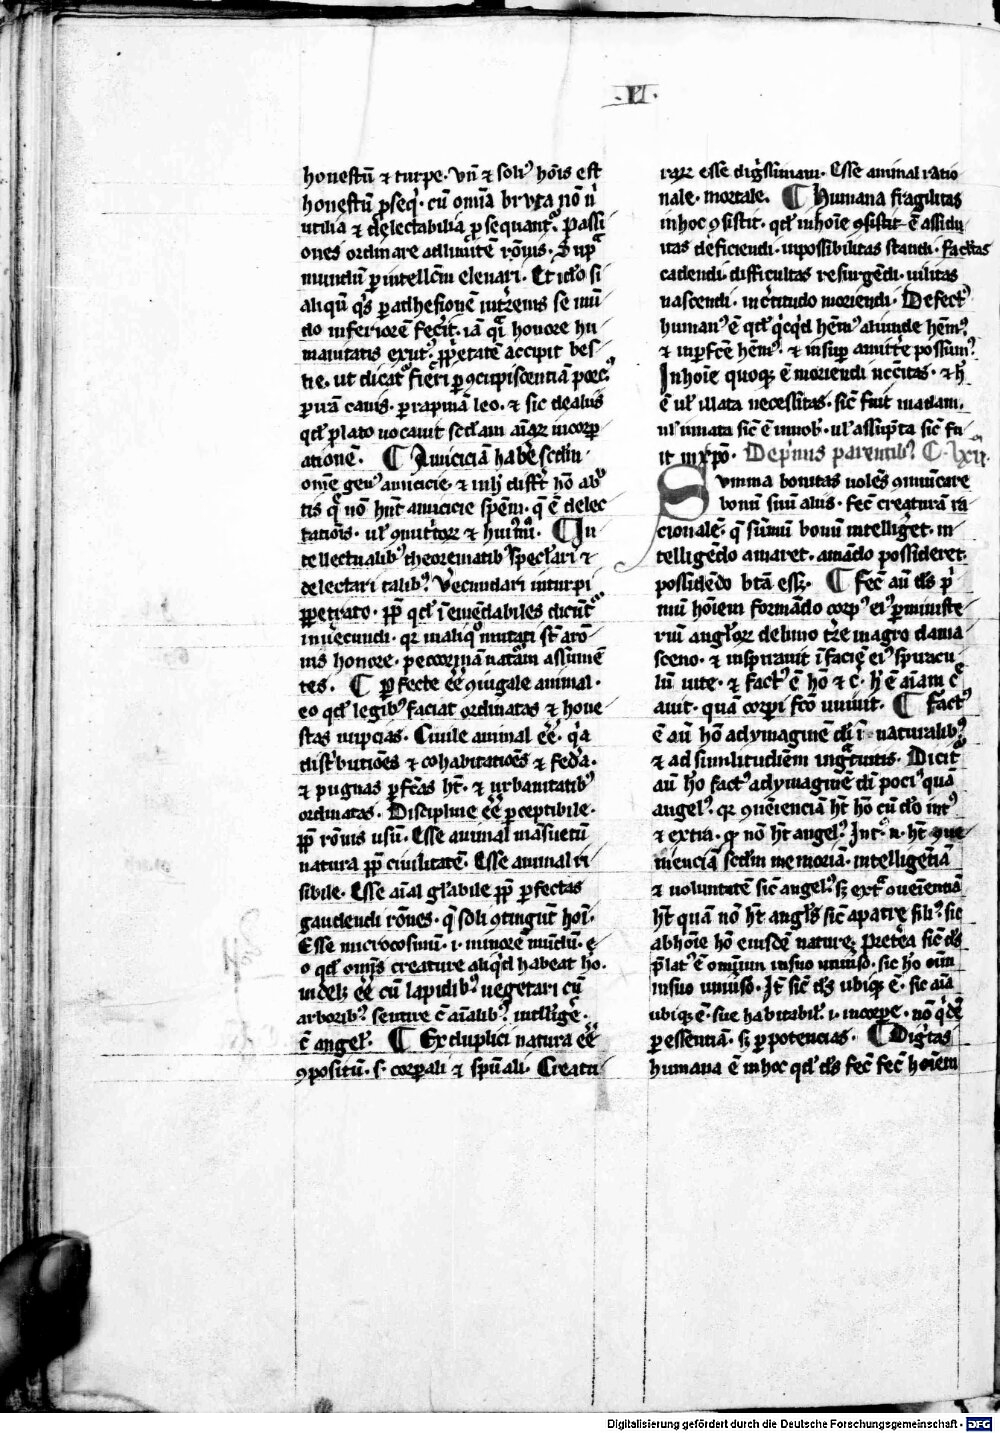 .VI.
honestū ⁊ turpe. Vn̄ ⁊ soli⁹ hōis est
honestū ꝑseq̄. cū om̄ia bruta nō n̄
utilia ⁊ delectabilia ꝑsequant᷑. Passi
ones ordinare ad limitē rōnis. Sup̄
mundū ꝑ intellc̄m eleuari. Et id̄o si
aliqū q̄s ꝑ adhesionē
do inferiorē fecit. iā q̄i honore hu
manitatis exut⁹. ꝓp̄etatē accipit bes
tie. ut dicat᷑ fieri ꝑ ꝯcupiscentiā porc⁹
ꝑ irā canis. ꝑ rapinā leo. ⁊ sic de aliis
qd̄ plato uocauit scd̄am aīaꝝ incorꝑ
ationē. ¶ Amiciciā habē scd̄m
om̄e gen⁹ amicicie. ⁊ in h̄ differt hō ab
tis q̄ nō hn̄t amicicie spēm. q̄ ē delec
tationis. ul̄ ⁊ ¶ In
tellectualib⁹ theorematib⁹ speclari ⁊
delectari talib⁹. Verecundari in turpi
ꝑpetrato. ꝓp̄ qd̄ īemēdabiles dicūt᷑
inuerecundi. qr in aliq̄ mutati st̄ a rō
nis honore. pecorinā nat̄am assumē
tes. ¶ Perfecte ēē ꝯiugale animal.
eo qd̄ legib⁹ faciat ordinatas ⁊ hone
stas nupcias. Ciuile animal ēē. q̄a
distributiōes ⁊ cohabitatiōes ⁊ fed̄a.
⁊ pugnas ꝑfc̄as ht̄. ⁊ urbanitatib⁹
ordinatas. Discipline ēē ꝑceptibile.
ꝓp̄ rōnis usū. Esse animal māsuetū
natura ꝓp̄ ciuilitatē. Esse animal ri
sibile. Esse aīal gl̄abile ꝓp̄ ꝑfectas
gaudendi rōnes. q̄ soli ꝯtingūt hōi.
Esse microcosmū. i. minorē mūdū. e
o qd̄ om̄is creature aliqd̄ habeat hō.
ēē cū lapidib⁹. uegetari cū
arborib⁹. sentire c̄ aīalib⁹. intelligē.
c̄ angel̄. ¶ Ex duplici natura ēē
ꝯpositū. s. corꝑali ⁊ spūali. Creatu
raꝝ esse dignissimam. Esse animal ratio
nale. mortale. ¶ Humana fragilitas
in hoc ꝯsistit. qd̄ in hoīe ꝯsistit ē assidu
itas deficiendi. inpossibilitas standi. facl̄itas
cadendi. difficultas resurgēdi. uilitas
nascendi. inc̄titudo moriendi. Defect⁹
human⁹ ē qd̄ q̄cq̄d hēm⁹ aliunde hēm⁹.
⁊ inꝑfc̄e hēm⁹. ⁊ insuꝑ amitt̄e possum⁹.
In hoīe quoqꝫ ē moriendi nc̄citas. ⁊ h̄
ē ul̄ illata necessitas. sic̄ fuit in adam.
ul̄ innata sic̄ ē in nob̄. ul̄ assūpta sic̄ fu
it in xp̄o. De p̄mis parentib⁹. C. lxii.
Summa bonitas uolēs ꝯmūicare
bonū suū aliis. fec̄ creaturā ra
cionalē. q̄ sūmū bonū intelliget. in
telligēdo amaret. amādo possideret.
possidēdo bt̄a esꝫ. ¶ Fec̄ aū d̄s p̄
mū hōiem formādo corp⁹ ei⁹ ꝑ ministe
riū angl̄oꝝ de limo tr̄e in agro dama
sceno. ⁊ inspirauit ī faciē ei⁹ spiracu
lū uite. ⁊ fact⁹ ē hō ⁊ c̄. h̄ ē aīam c̄
auit. quā corpī fc̄o uniuit. ¶ Fact⁹
ē aū hō ad ymaginē di ī naturalib⁹.
⁊ ad similitudiēm in gratuitis. Dicit᷑
aū ho fact⁹ ad ymaginē di poci⁹ quā
angel⁹. qr ꝯueniencia ht̄ hō cū d̄o int⁹
⁊ extra. qr nō ht̄ angel⁹. Int⁹ .n. ht̄ ꝯue
nienciā scd̄m memoriā. intelligētiā
⁊ uoluntatē sic̄ angel⁹. sꝫ ext᷑ ꝯueientiā
ht̄ quā nō ht̄ angl̄s sic̄ a patre fili⁹. sic
ab hoīe hō eiusdē nature. Preterea sic̄ d̄s
p̄lat⁹ ē omnium in suo uniūso. sic ho oim
in suo uniūso. It̄ sic̄ d̄s ubiqꝫ ē. sic aīa
ubiqꝫ ē. sue habitabil̄. i. incorꝑe. nō q̄dē
ꝑ essentiā. sꝫ ꝑ potencias. ¶ Dignitas
humana ē in hoc qd̄ d̄s fec̄ fec̄ hoīem
Digitalisierung gefördert durch die Deutsche Forschungsgemeinschaft - DFG